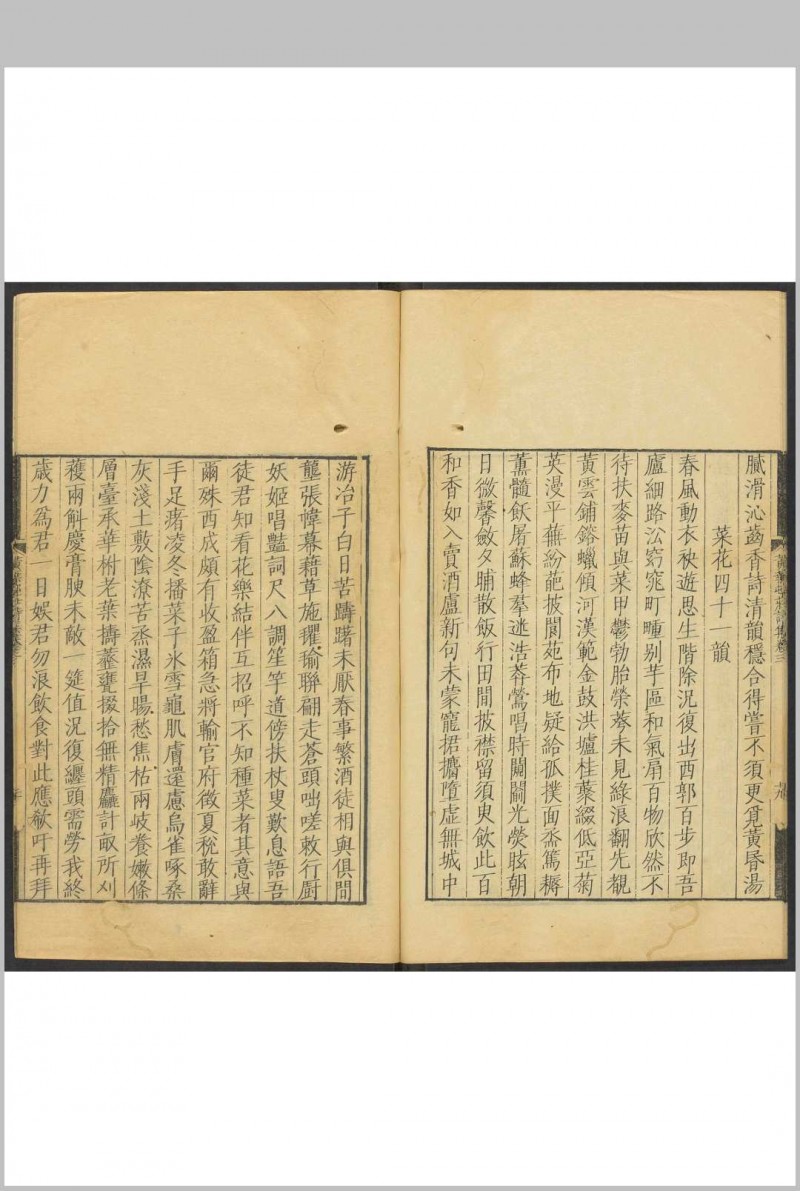 膩滑沁蒭香詩清韻穩合得嘗不須更覓黃昏湯
菜花四十一韻
春風動衣袂遊思生階除況復出西郭百步即吾
廬細路沿窈窕町畽别芋區和氣扇百物欣然不
待扶麥苗與菜甲鬱勃胎榮蕚未見綠浪翻先覩
黃雲鋪鎔蠟傾河漢範金鼓洪爐桂蘂綴低亞菊
英漫平蕪紛葩披閬苑布地疑給孤撲面烝篤耨
薰髓飫屠蘇蜂羣迷浩莽鶯唱時闐闐光熒眩朝
日微馨斂夕晡散飯行田間披襟留須臾飲此百
和香如入賣酒廬新句未蒙寵捃摭墮虛無城中
游冶子白日苦躊躇未厭春事繁酒徒相與俱問
壟張幃幕藉草施㼆瑜聯翩走蒼頭咄嗟敕行厨
妖姬唱豔詞尺八調笙竽道傍扶杖叟歎息語吾
徒君知看花樂結伴互招呼不知種菜者其意與
爾殊西成頗有收盈箱急將輸官府徵夏稅敢辭
手足瘏凌冬播菜子氷雪龜肌膚還慮烏雀啄桑
灰淺土敷陰潦苦烝濕旱腸愁焦枯兩岐養嫩條
層臺承華柎老葉擣虀甕掇拾無精麤計畝所刈
穫兩斛慶膏腴未敵一筵值況復纏頭需勞我終
歲力為君一日娛君勿浪飲食對此應欷吁再拜